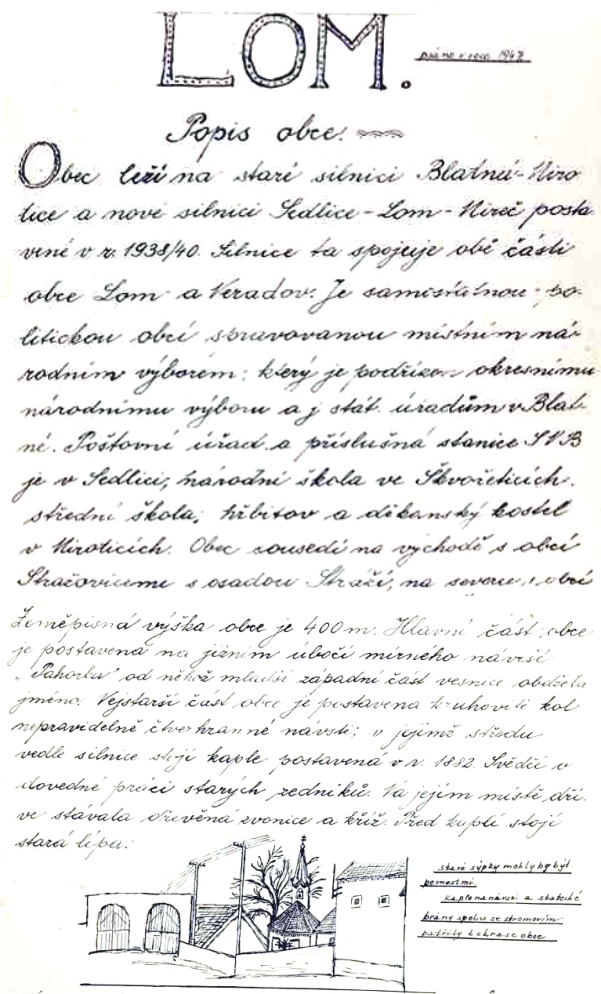 LOM.
psáno v roce 1947
Popis obce.
Obec leží na staré silnici Blatná-Miro
tice a nové silnici Sedlice-Lom-Mireč posta
vené v r. 1938/40. Silnice ta spojuje obě části
obce Lom a Neradov. Je samostatnou po-
litickou obcí spravovanou místním ná-
rodním výborem: který je podřízen okresnímu
národnímu výboru a j stát. úřadům v Blat-
né. Poštovní úřad a příslušná stanice SNB
je v Sedlici, národní škola ve Škvořeticích.
střední škola, hřbitov a děkanský kostel
v Miroticích. Obec sousedí na východě s obcí
Stražovicemi s osadou Stráží, na severu s obcí
Zeměpisná výška obce je 400 m. Hlavní část obce
je postavena na jižním úbočí mírného návrší
„Pahorku" od něhož mladší západní část vesnice obdržela
jméno. Nejstarší část obce je postavena kruhovitě kol
nepravidelně čtverhranné návsi; v jejímž středu
vedle silnice stojí kaple postavená v r. 1882. Svědčí o
dovedné práci starých zedníků. Na jejím místě dří.
ve stávala dřevěná zvonice a kříž. Před kaplí stojí
stará lípa.
staré sýpky mohly by být
kaple na návsi a statské
brány spolu se stromovím
patřily k okrase obce